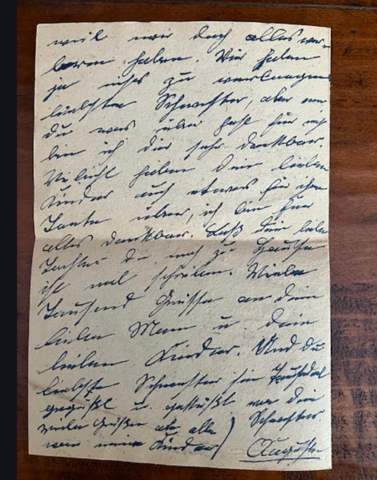 weil wir doch alles ver-
loren haben. Wir haben
ja nichts zu verlangen
liebste Schwester, aber wen
du was übri hast für mich
bin ich dir sehr dankbar
Vileicht haben Dein lieben
Kinder auch etwas für ihre
Tante über, ich bin für
alles dankbar. Laß dein liebe
Tochter du noch zu Hause
ist mal schreiben. Viele
Tausend Grüsse an dein
lieben Mann u. dein
lieben Kinder. Und du
liebste Schwester sei Tausendmal
gegrüßt u. geküßt von dein
viele Grüßen an alle Schwester
von meine Kinder) Auguste